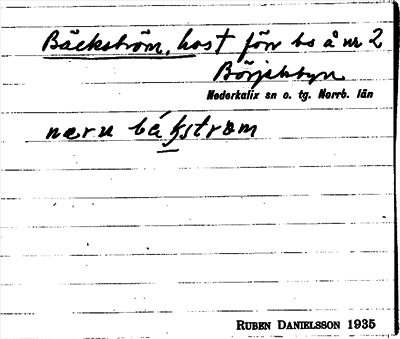 Bäckström, host förr bs å nr 2
Börjelsbyn
Nederkalix sn o. tg. Norrb. län
næru bákstrøm
RUBEN DANIELSSON 1935